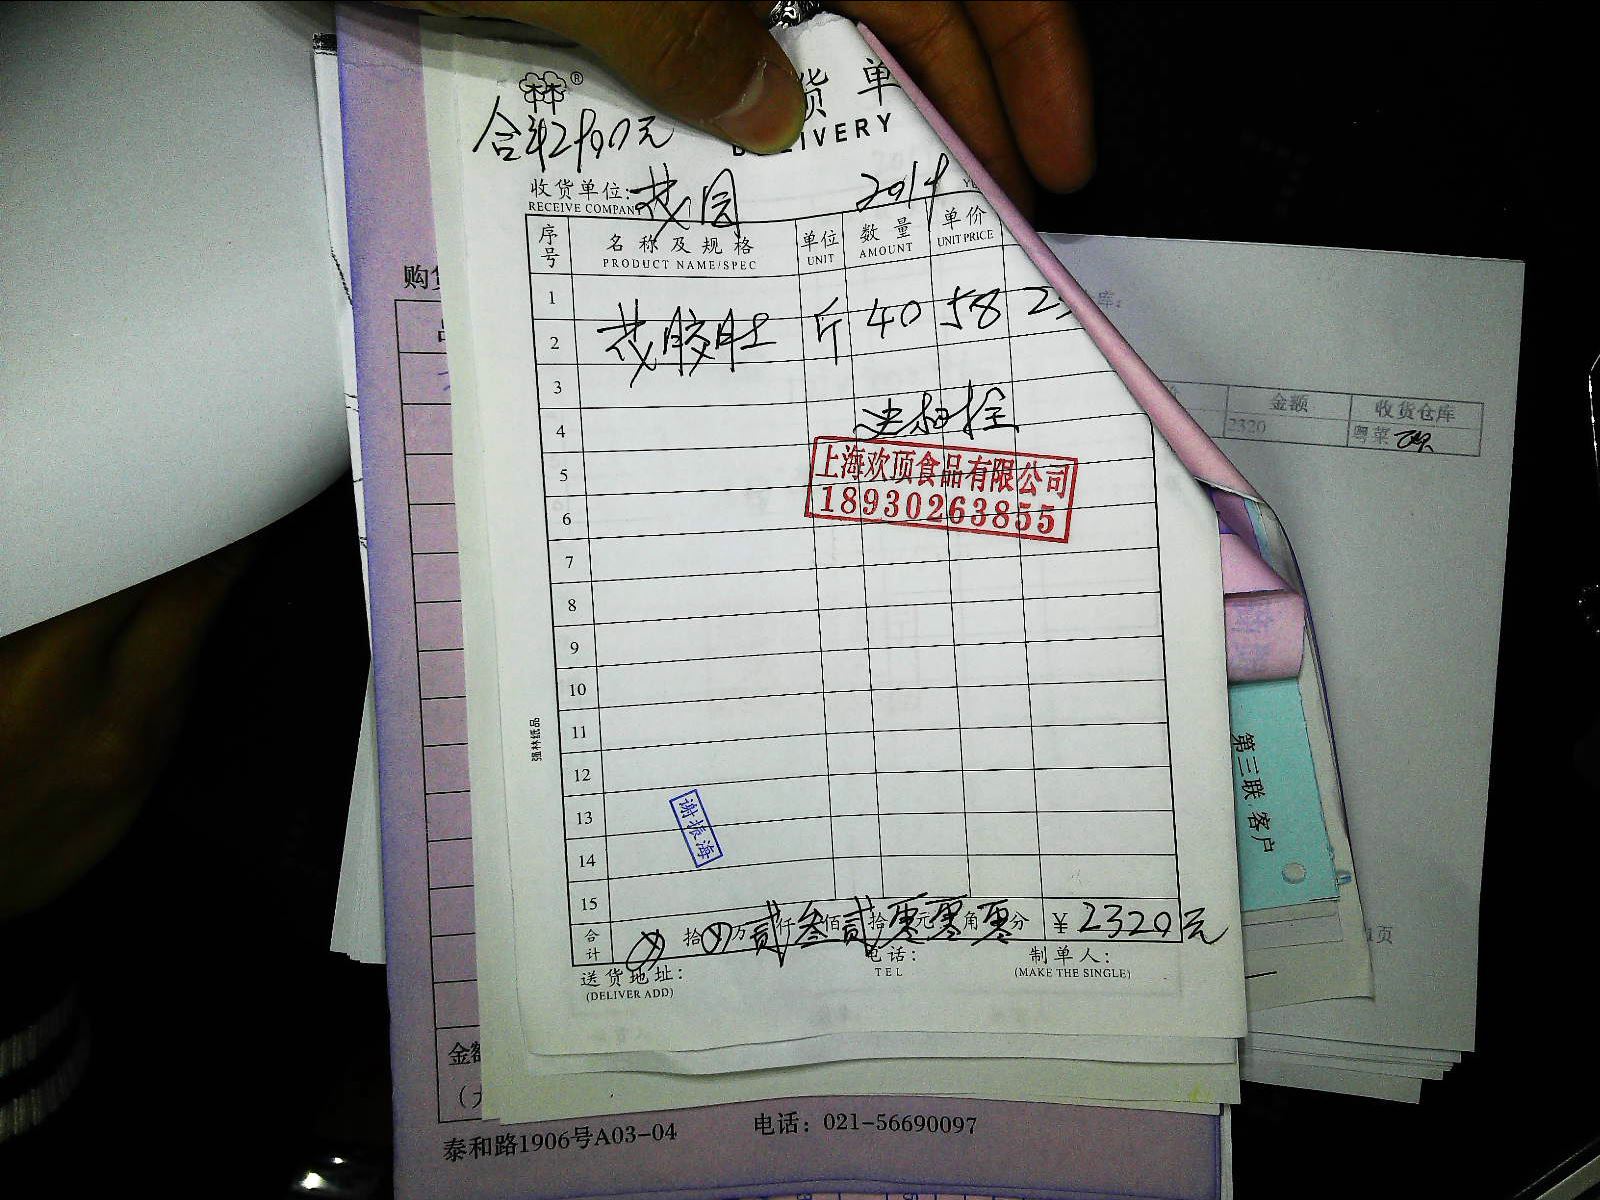 货单
DELIVERY
收货单位:
RECEIVE COMPANY
2014
序号 名称及规格 单位 数量 单价
PRODUCT NAME/SPEC UNIT AMOUNT UNIT PRICE
1
2 茂胶肚 斤 40 58
3
4
5
上海欢顶食品有限公司
18930263855
6
7
8
9
10
11
12
13
谢振海
14
15
合计 拾 万贰仟叁佰贰拾零元零角零分 ¥2320元
送货地址: 电话: 制单人:
(DELIVER ADD) TEL (MAKE THE SINGLE)
强林纸品
金额 收货仓库
2320 粤菜
第三联:客户
1页
泰和路1906号A03-04 电话：021-56690097